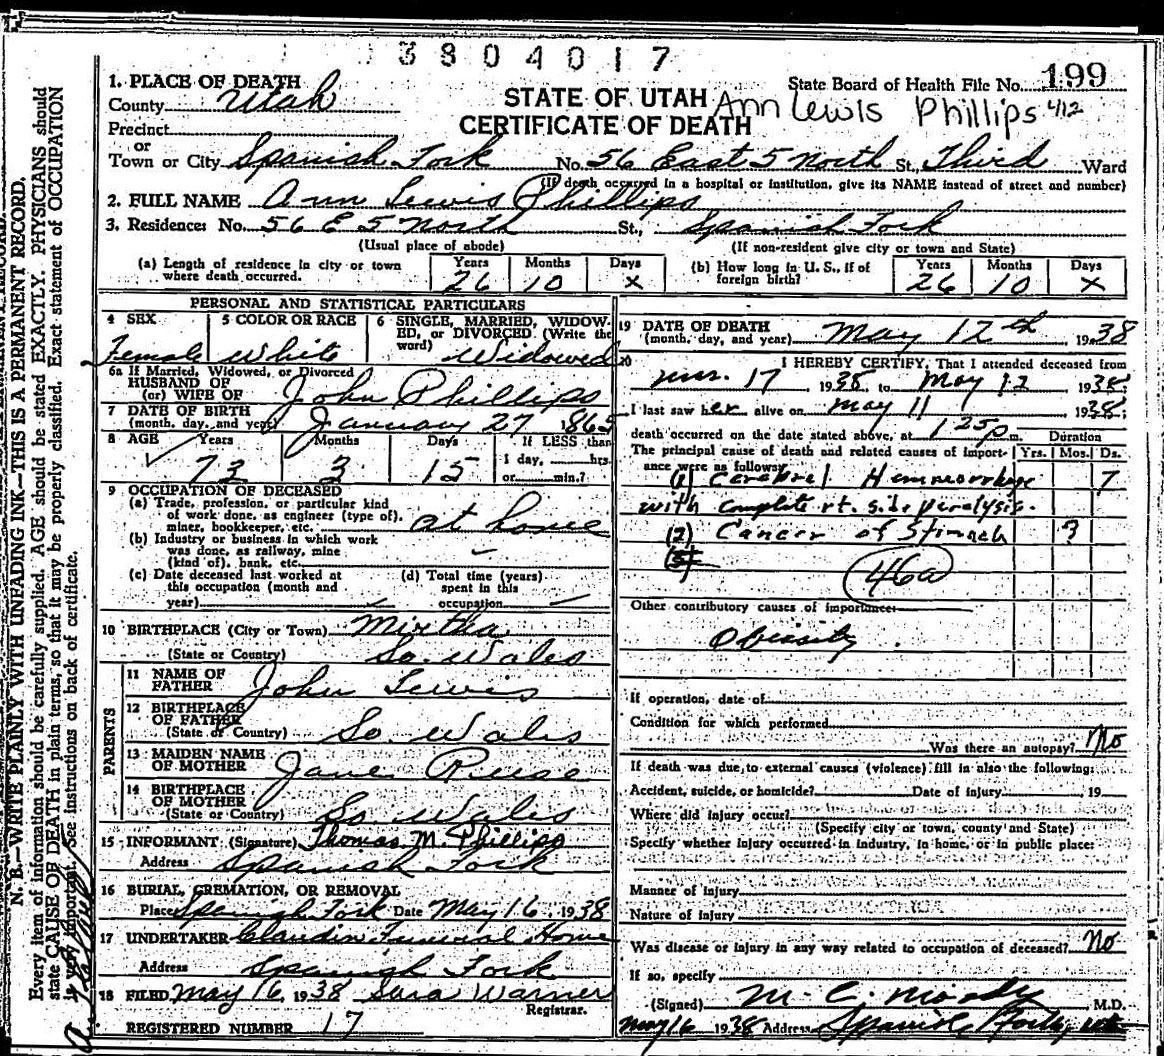 3804017
1. PLACE OF DEATH
State Board of Health File No. 199
County Utah
STATE OF UTAH
Ann Lewis Phillips 4/12
Precinct
CERTIFICATE OF DEATH
or
Town or City Spanish Fork No. 56 East 5 North St., Third Ward
(If death occurred in a hospital or institution, give its NAME instead of street and number)
2. FULL NAME Ann Lewis Phillips
3. Residence: No. 56 E 5 North St., Spanish Fork
(Usual place of abode) (If non-resident give city or town and State)
(a) Length of residence in city or town where death occurred. Years 26 Months 10 Days x
(b) How long in U. S., if of foreign birth? Years 26 Months 10 Days x
PERSONAL AND STATISTICAL PARTICULARS
4 SEX Female
5 COLOR OR RACE White
6 SINGLE, MARRIED, WIDOWED, or DIVORCED. (Write the word) Widowed
6a If Married, Widowed, or Divorced
HUSBAND OF
(or) WIFE OF John Phillips
7 DATE OF BIRTH
(month, day, and year) January 27 1865
8 AGE Years 73 Months 3 Days 15 If LESS than
1 day, hrs.
or min.?
9 OCCUPATION OF DECEASED
(a) Trade, profession, or particular kind
of work done, as engineer (type of),
miner, bookkeeper, etc. at home
(b) Industry or business in which work
was done, as railway, mine
(kind of), bank, etc.
(c) Date deceased last worked at
this occupation (month and
year)
(d) Total time (years)
spent in this
occupation
10 BIRTHPLACE (City or Town) Mirtha
(State or Country) So. Wales
PARENTS
11 NAME OF
FATHER John Lewis
12 BIRTHPLACE
OF FATHER
(State or Country) So. Wales
13 MAIDEN NAME
OF MOTHER Jane Reese
14 BIRTHPLACE
OF MOTHER
(State or Country) So Wales
15 INFORMANT (Signature) Thomas M. Phillips
Address Spanish Fork
16 BURIAL, CREMATION, OR REMOVAL
Place Spanish Fork Date May 16 1938
17 UNDERTAKER Claudin Funeral Home
Address Spanish Fork
18 FILED May 16, 1938 Sara Warner
Registrar.
REGISTERED NUMBER 17
19 DATE OF DEATH
(month, day, and year) May 12th 1938
20 I HEREBY CERTIFY, That I attended deceased from
17 1938 to May 12 1938;
I last saw her alive on May 11 1938;
death occurred on the date stated above, at 1 25 p m. Duration
The principal cause of death and related causes of importance were as follows: Yrs. Mos. Ds.
(1) Cerebral Hemmorrhage 7
with complete rt. side paralysis.
(2) Cancer of Stomach 3
(3)
46a
Other contributory causes of importance:
Obessity
If operation, date of
Condition for which performed
Was there an autopsy? No
If death was due to external causes (violence) fill in also the following:
Accident, suicide, or homicide? Date of injury 19
Where did injury occur?
(Specify city or town, county and State)
Specify whether injury occurred in industry, in home, or in public place:
Manner of injury
Nature of injury
Was disease or injury in any way related to occupation of deceased? No
If so, specify
(Signed) M. C. Moody M.D.
May 16 1938 Address Spanish Fork, Ut
N. B.—WRITE PLAINLY WITH UNFADING INK—THIS IS A PERMANENT RECORD.
Every item of information should be carefully supplied. AGE should be stated EXACTLY. PHYSICIANS should
state CAUSE OF DEATH in plain terms, so that it may be properly classified. Exact statement of OCCUPATION
is very important. See instructions on back of certificate.